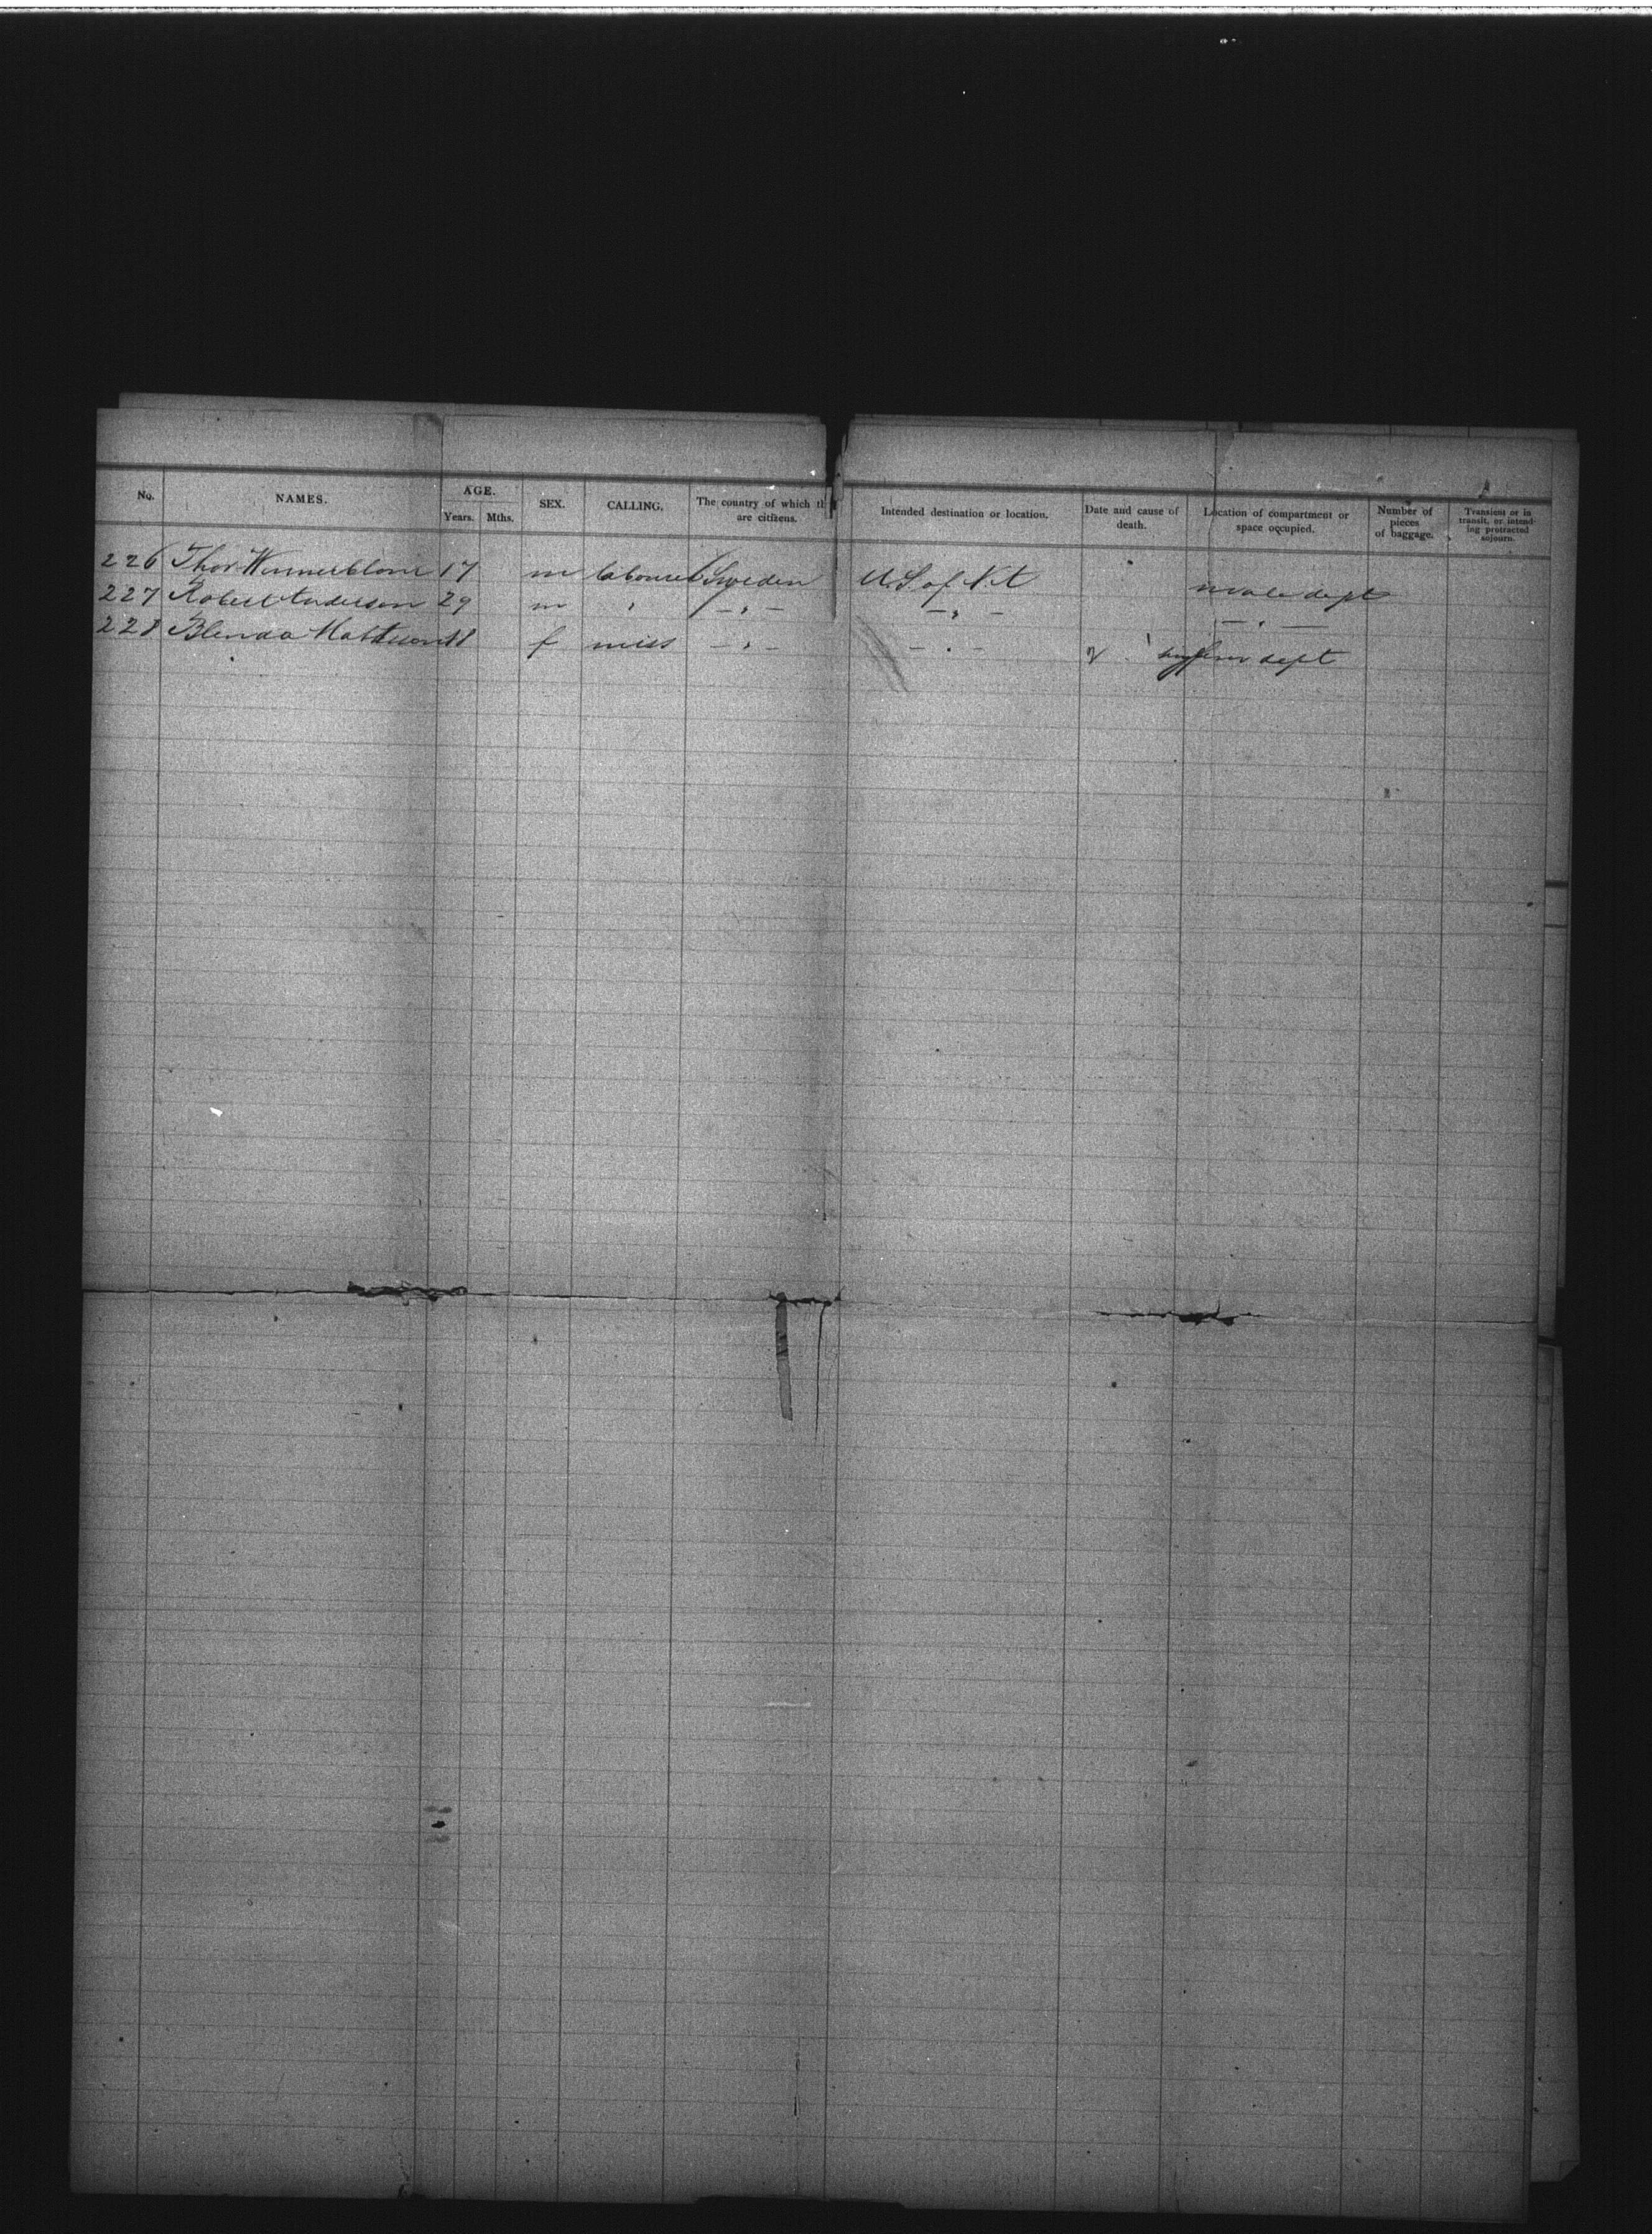 No. NAMES. AGE. Years. Mths. SEX. CALLING. The country of which th are citizens. Intended destination or location. Date and cause of death. Location of compartment or space occupied. Number of pieces of baggage. Transient or in transit, or intend-ing protracted sojourn.
226 Thor Wennerblom 17 m labourer Sweden U.S. of N.A male dept
227 Robert Anderson 29 m " – " – – " – – " –
228 Blenda Mattsson 18 f miss – " – – " – dept